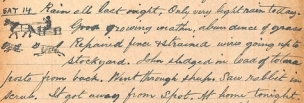 SAT 14 Rain all last night. Only very light rain today.
Good growing weather, abundance of grass
Repaired fence & strained wire going up to
Stockyard. John sledged in load of totara
posts from back. Went through sheep. Saw rabbit in
scrub. It got away from Spot. At home tonight.